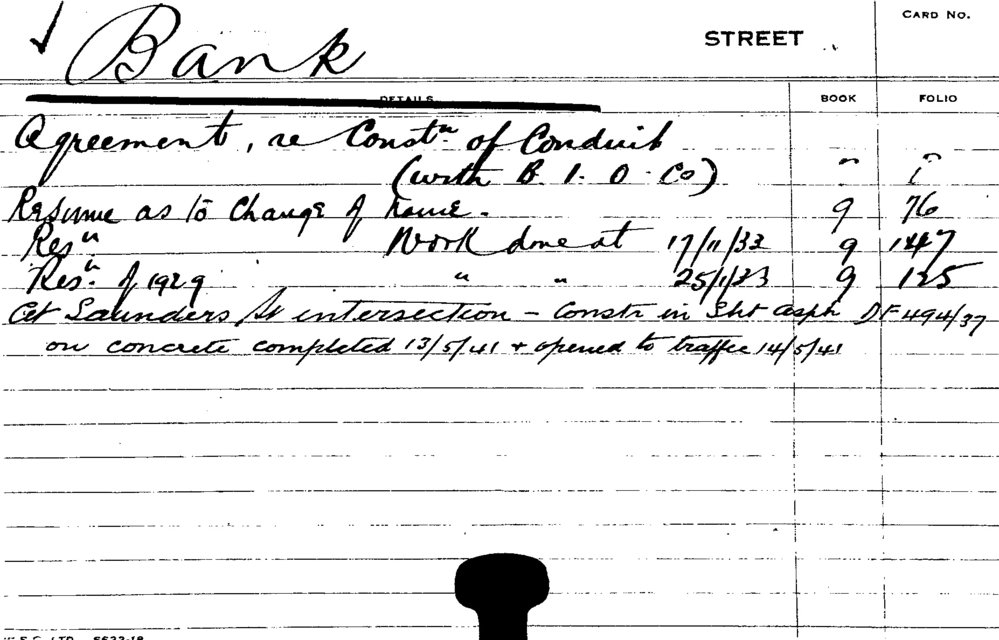 CARD No.
Bank STREET
DETAILS BOOK FOLIO
Agreement, re Constn. of Conduit
(with B. I. O. Co)
Resume as to Change of name. 9 76
Resn Work done at 17/11/33 9 147
Resn. of 1929 " " 25/1/33 9 125
At Saunders St intersection - Constr in Sht asph DF 494/37
on concrete completed 13/5/41 + opened to traffic 14/5/41
LTD. 5633-18